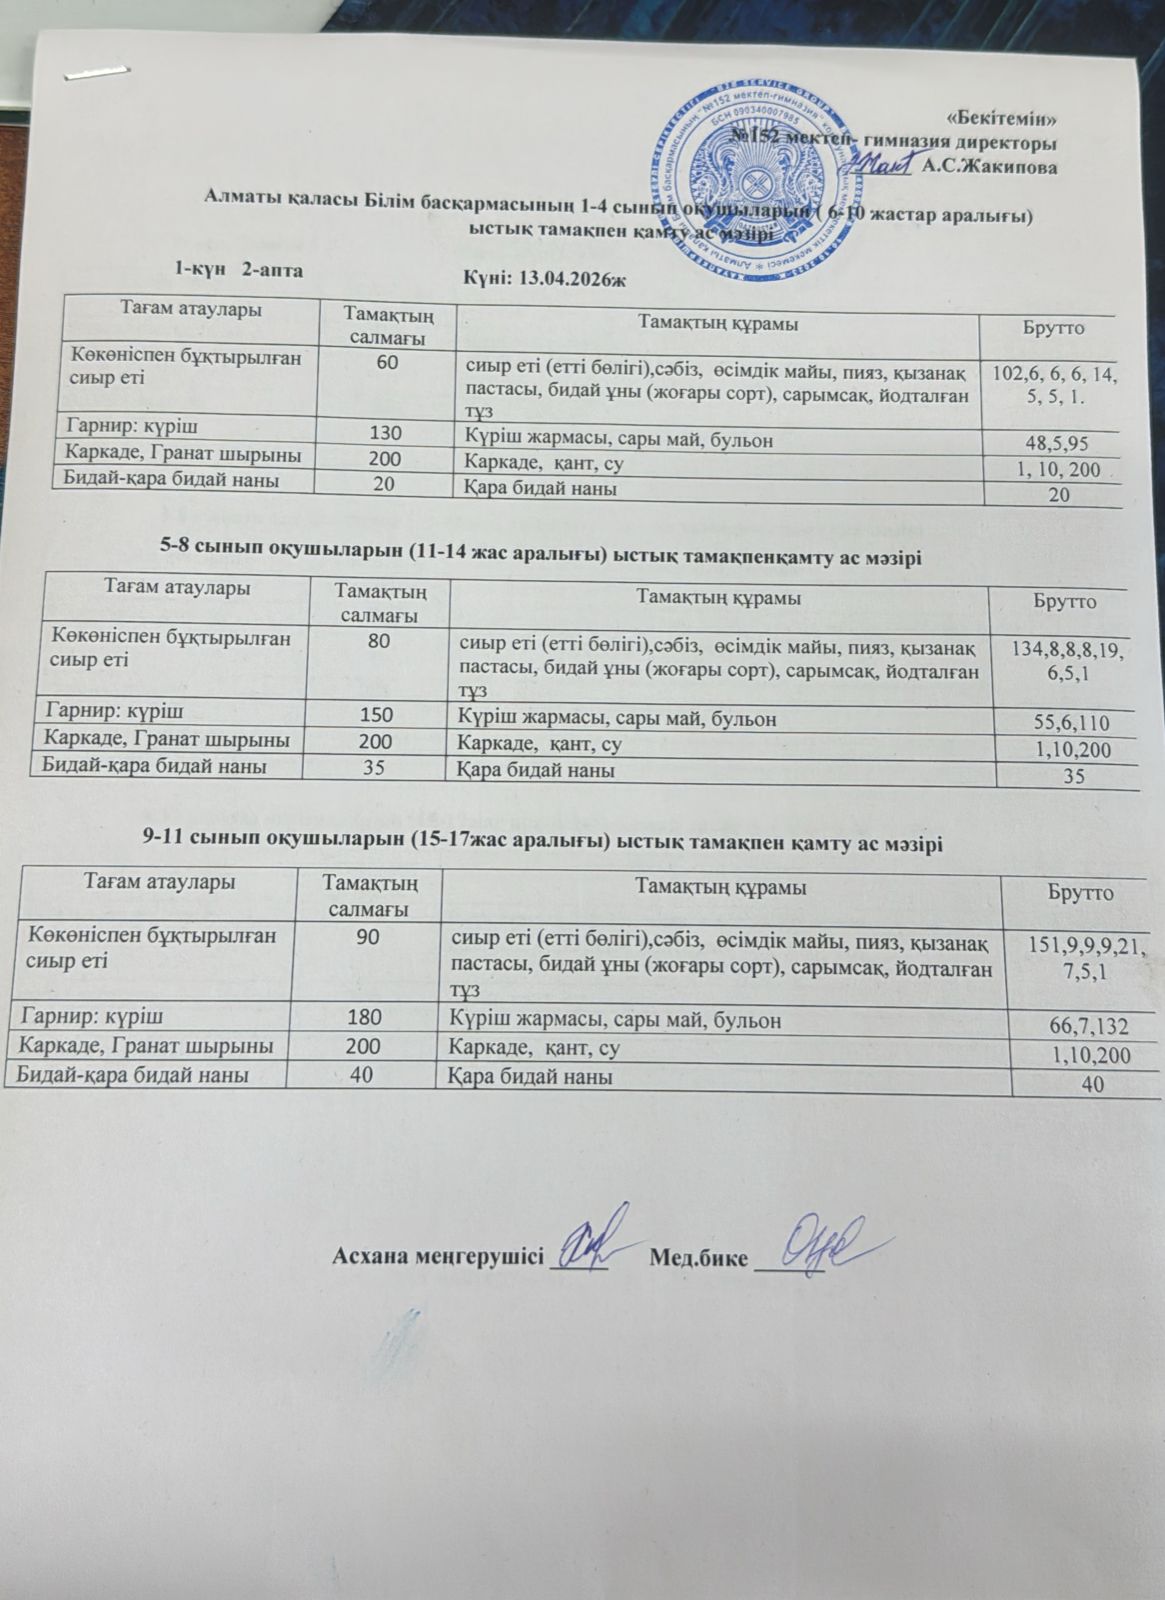 «Бекітемін»
№152 мектеп- гимназия директоры
А.С.Жакипова
Алматы қаласы Білім басқармасының 1-4 сынып оқушыларын ( 6-10 жастар аралығы)
ыстық тамақпен қамту ас мәзірі
1-күн 2-апта
Күні: 13.04.2026ж
Тағам атаулары
Тамақтың
салмағы
Тамақтың құрамы
Брутто
Көкөніспен бұқтырылған
сиыр еті
60
сиыр еті (етті бөлігі),сәбіз, өсімдік майы, пияз, қызанақ
пастасы, бидай ұны (жоғары сорт), сарымсақ, йодталған
тұз
102,6, 6, 6, 14,
5, 5, 1.
Гарнир: күріш
130
Күріш жармасы, сары май, бульон
48,5,95
Каркаде, Гранат шырыны
200
Каркаде, қант, су
1, 10, 200
Бидай-қара бидай наны
20
Қара бидай наны
20
5-8 сынып оқушыларын (11-14 жас аралығы) ыстық тамақпенқамту ас мәзірі
Тағам атаулары
Тамақтың
салмағы
Тамақтың құрамы
Брутто
Көкөніспен бұқтырылған
сиыр еті
80
сиыр еті (етті бөлігі),сәбіз, өсімдік майы, пияз, қызанақ
пастасы, бидай ұны (жоғары сорт), сарымсақ, йодталған
тұз
134,8,8,8,19,
6,5,1
Гарнир: күріш
150
Күріш жармасы, сары май, бульон
55,6,110
Каркаде, Гранат шырыны
200
Каркаде, қант, су
1,10,200
Бидай-қара бидай наны
35
Қара бидай наны
35
9-11 сынып оқушыларын (15-17жас аралығы) ыстық тамақпен қамту ас мәзірі
Тағам атаулары
Тамақтың
салмағы
Тамақтың құрамы
Брутто
Көкөніспен бұқтырылған
сиыр еті
90
сиыр еті (етті бөлігі),сәбіз, өсімдік майы, пияз, қызанақ
пастасы, бидай ұны (жоғары сорт), сарымсақ, йодталған
тұз
151,9,9,9,21,
7,5,1
Гарнир: күріш
180
Күріш жармасы, сары май, бульон
66,7,132
Каркаде, Гранат шырыны
200
Каркаде, қант, су
1,10,200
Бидай-қара бидай наны
40
Қара бидай наны
40
Асхана меңгерушісі ______ Мед.бике ______